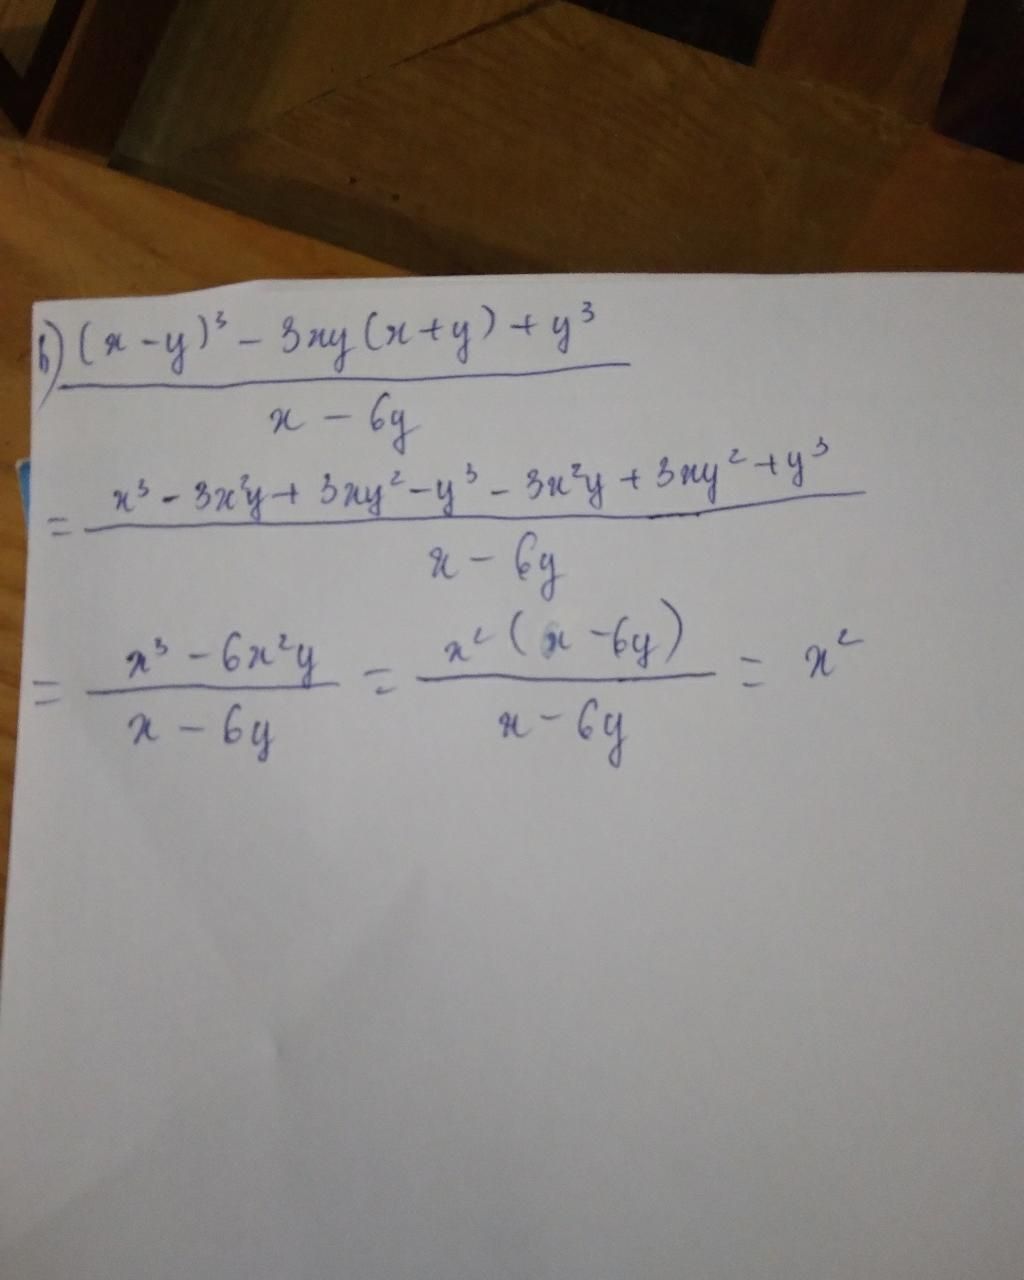 b) (x-y)³ - 3xy(x+y) + y³
x - 6y
= x³ - 3x²y + 3xy² - y³ - 3x²y + 3xy² + y³
x - 6y
= x³ - 6x²y = x²(x - 6y) = x²
x - 6y x - 6y